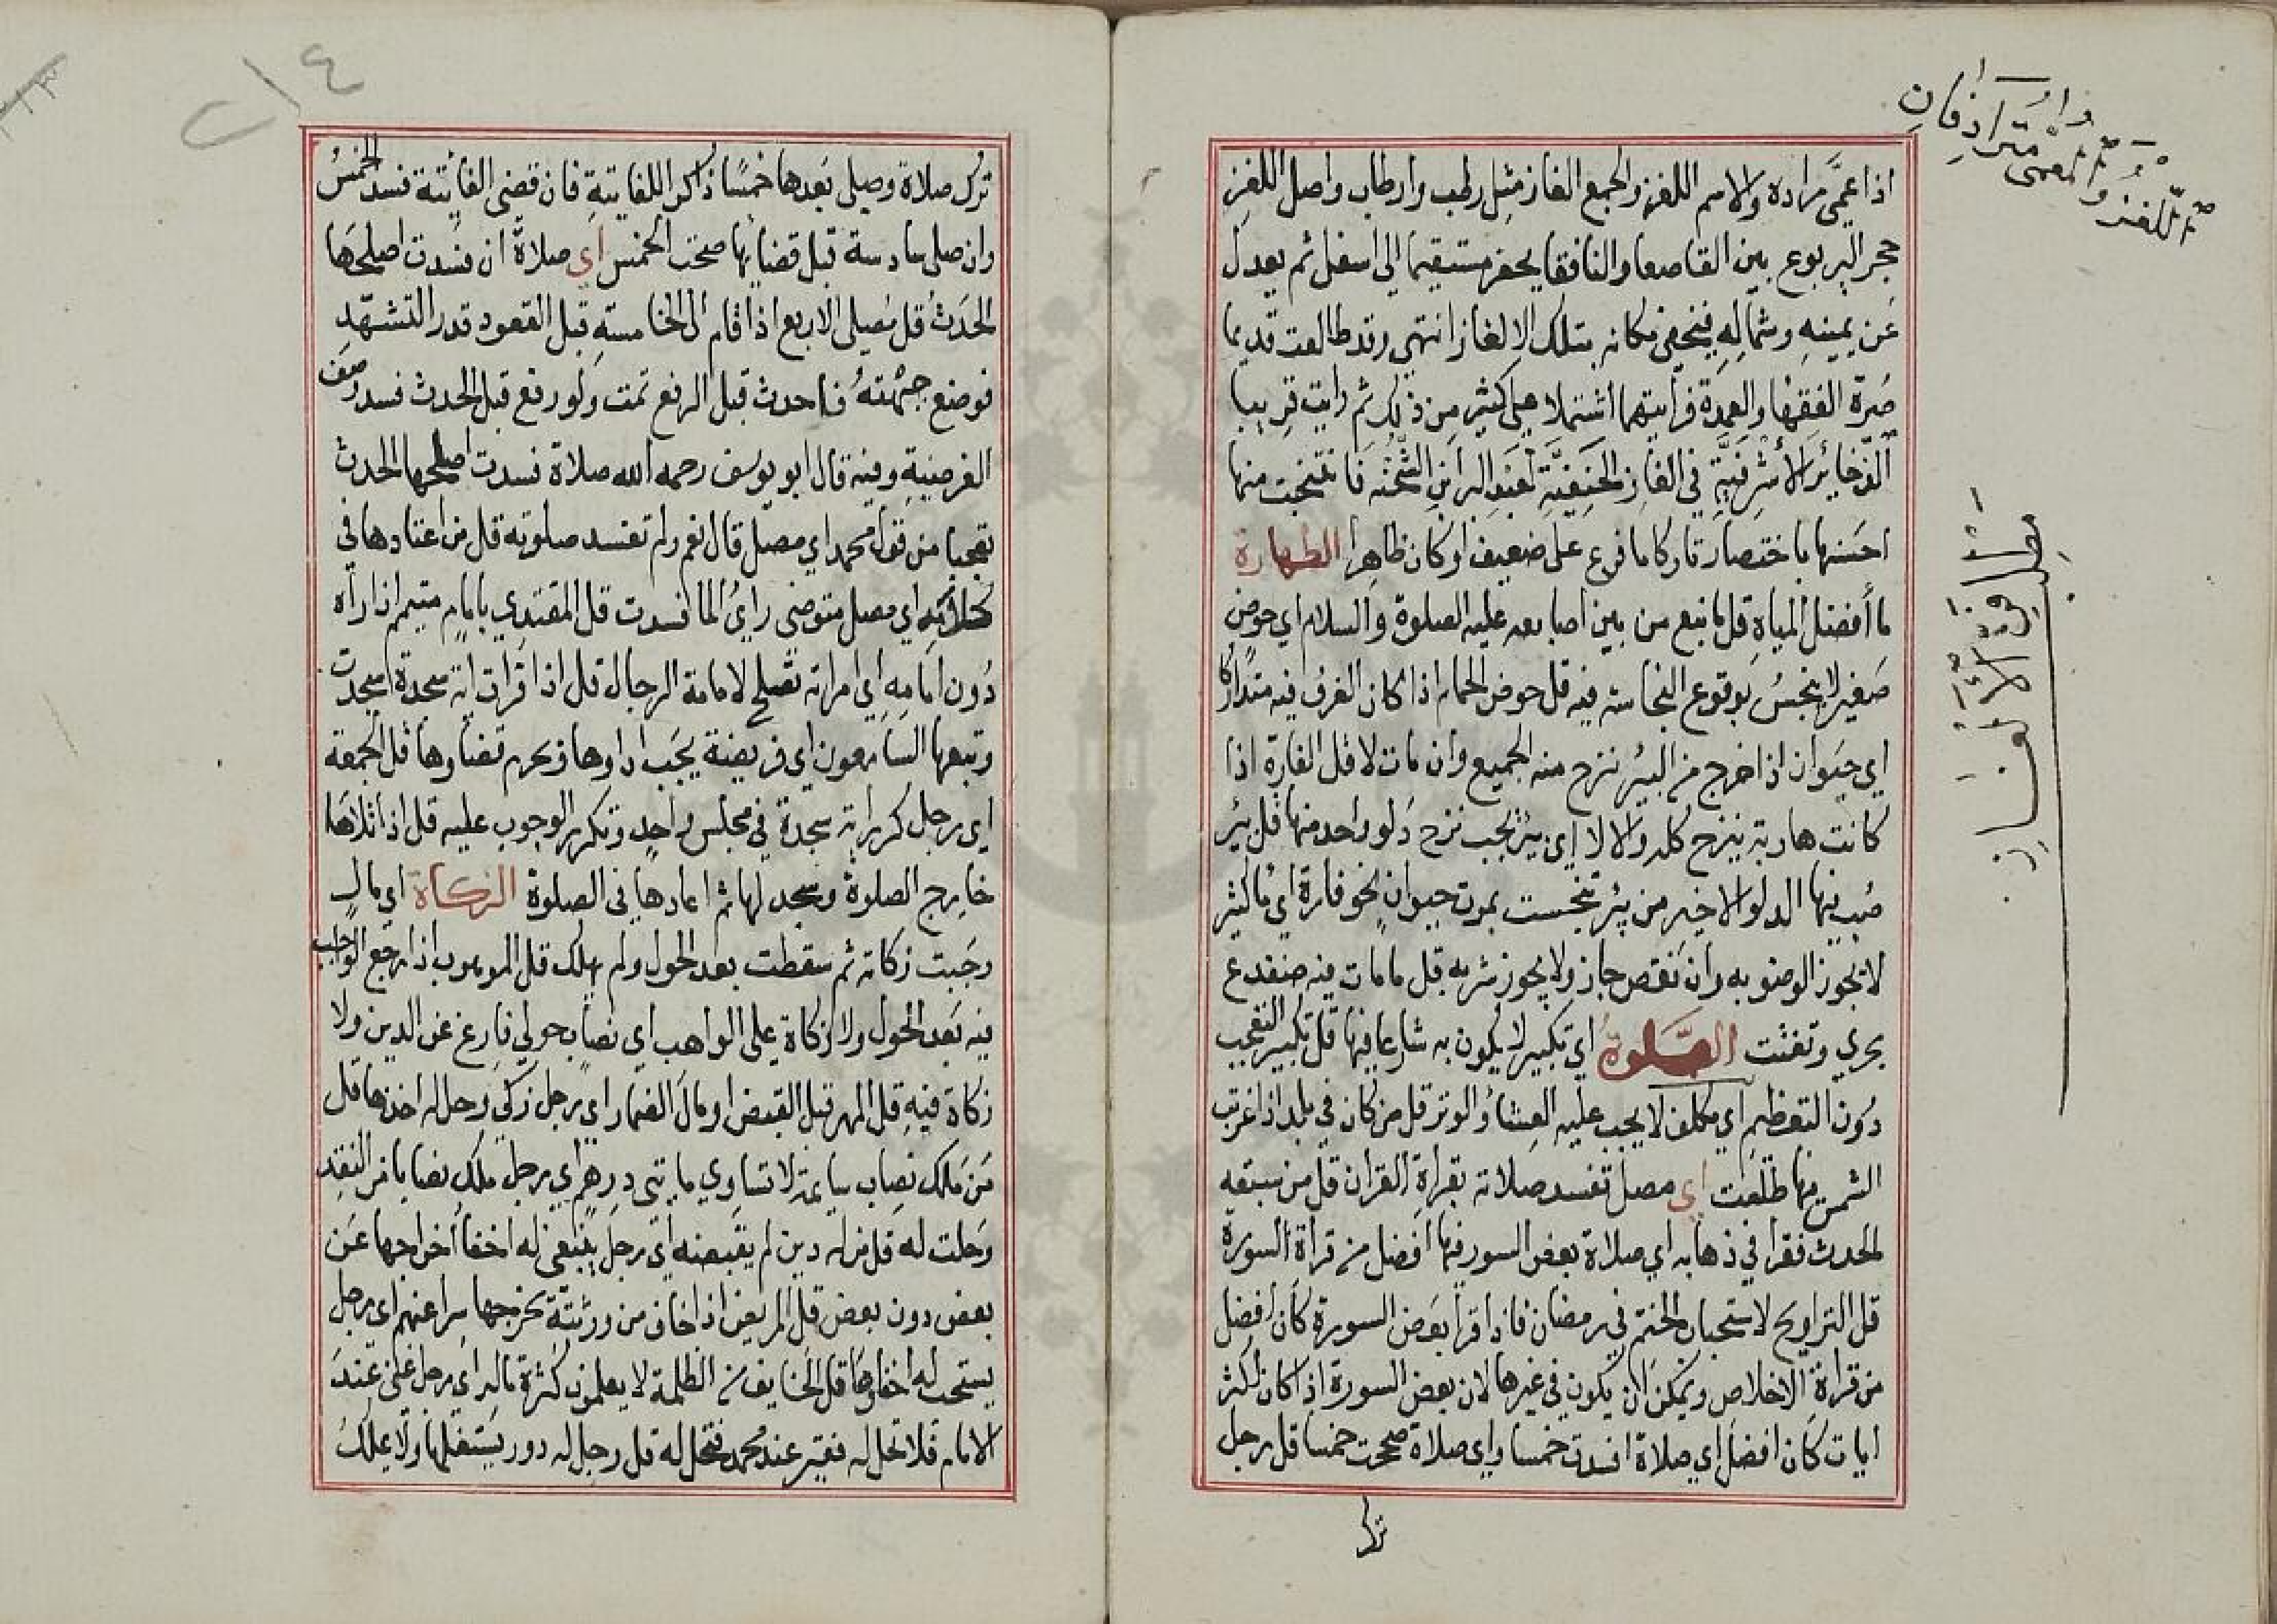 اذا عمَّى مراده والاسم اللغز والجمع الغاز مثل رطب وارطاب واصل اللغز
حجر اليربوع بين القاصعا والنافقا يحفر مستقيما الى اسفل ثم يعدل
عن يمينه وشماله فيخفى مكانه بتلك الالغاز انتهى وقد طالعت قديما
حيرة الفقها والعمدة فرأيتهما اشتملا على كثير من ذلك ثم رايت قريبا
الذخاير الأشرفية في الغاز الحنفية لعبد البر ابن الشحنه فانتخبت منها
احسنها باختصار تاركا ما فرع على ضعيف او كان ظاهرا الطهارة
ما أفضل المياه قل ما نبع من بين اصابعه عليه الصلوة والسلام اي حوض
صغير لا ينجس بوقوع النجاسه فيه قل حوض الحمام اذا كان الغرف فيه متداركا
اي حيوان اذا خرج من البير نزح منه الجميع وان مات لا قل الفارة اذا
كانت هاربة ينزح كله والا لا اي بير يجب نزح دلو واحد منها قل بئر
صب فيها الدلو الاخير من بئر تنجست بموت حيوان نحو فارة اي ماء كثير
لا يجوز الوضو به وان نقص جاز ولا يجوز شربه قل ما مات فيه ضفدع
بحري وتفتت الصَّلوة اي تكبير لا يكون به شارعا فيها قل تكبير التعجب
دون التعظيم اي مكلف لا يجب عليه العشا والوتر قل من كان في بلد اذا غربت
الشمس فيها طلعت اي مصل تفسد صلاته بقراة القران قل من سبقه
الحدث فقرا في ذهابه اي صلاة بعض السور فيها افضل من قراة السورة
قل التراويح لاستحباب الختم في رمضان فاذا قرا بعض السورة كان افضل
من قراة الاخلاص ويمكن ان يكون في غيرها لان بعض السورة اذا كان اكثر
ايات كان افضل اي صلاة افسدت خمسا واي صلاة صححت خمسا قل رجل
ترك
واللغز والمعمى مترادفان
مطلب في الألغاز
٢١٤
ترك صلاة وصلى بعدها خمسا ذاكرا للفايتة فان قضى الفائتة فسد الخمس
وان صلى سادسة قبل قضايها صحت الخمس اي صلاة ان فسدت اصلحها
الحدث قل مصلى الاربع اذا قام الى الخامسة قبل القعود قدر التشهد
فوضع جبهته فاحدث قبل الرفع تمت ولو رفع قبل الحدث فسد وصف
الفرضية وفيه قال ابو يوسف رحمه الله صلاة فسدت اصلحها الحدث
تعجبا من قول محمد اي مصل قال نعم ولم تفسد صلوته قل من اعتادها في
كلامه اي مصل متوضى راى الما فسدت قل المقتدي بامام متيمم اذا رآه
دون امامه اي امراة تصلح لامامة الرجال قل اذا قرات اية سجدة سجدت
وتبعها السامعون اي فريضة يجب اداوها ويحرم قضاوها قل الجمعة
اي رجل كرر اية سجدة في مجلس واحد وتكرر الوجوب عليه قل اذا تلاها
خارج الصلوة وسجد لها ثم اعادها في الصلوة الزكاة اي مال
وجبت زكاته ثم سقطت بعد الحول ولم يهلك قل الموهوب اذا رجع الواهب
فيه بعد الحول ولا زكاة على الواهب اي نصاب حولي فارغ عن الدين ولا
زكاة فيه قل المهر قبل القبض او مال الضمار اي رجل زكى وحل له اخذها قل
من ملك نصاب سايمة لا تساوي مايتى درهم اي رجل ملك نصابا من النقد
وحلت له قل من له دين لم يقبضه اي رجل ينبغى له اخفاء اخراجها عن
بعض دون بعض قل المريض اذا خاف من ورثته يخرجها سرا عنهم اي رجل
يستحب له اخفاوها قل الخايف من الظلمة لا يعلمون كثرة ماله اي رجل غنى عند
الامام فلا تحل له فقير عند محمد فتحل له قل رجل له دور يستغلها ولا يملك